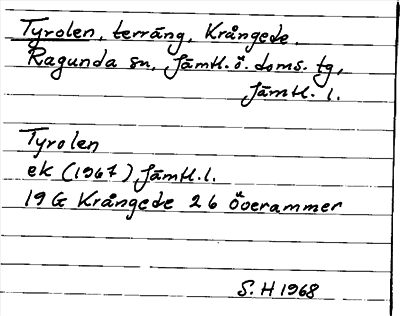 Tyrolen, terräng, Krångede.
Ragunda sn, Jämtl. ö. doms. tg,
Jämtl. l.
Tyrolen
ek (1967) Jämtl. l.
19 G Krångede 26 överammer
S. H 1968